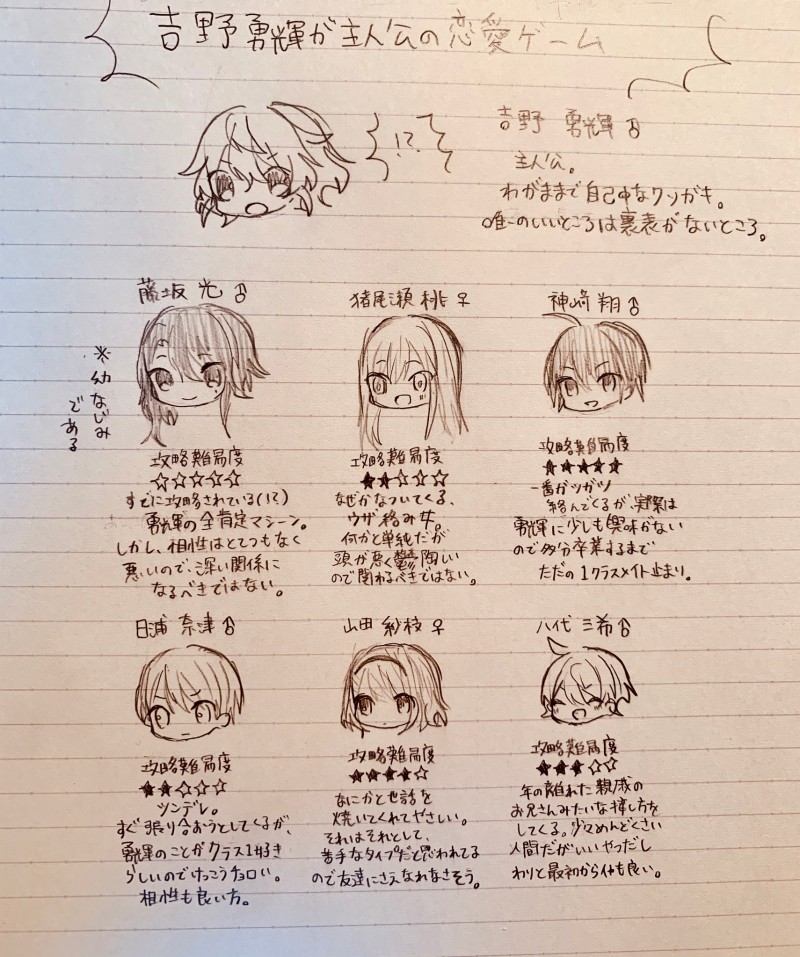 吉野勇輝が主人公の恋愛ゲーム
!?
吉野 勇輝♂
主人公。
わがままで自己中なクソガキ。
唯一のいいところは裏表がないところ。
藤坂 光♂
※幼なじみ
である
攻略難易度
☆☆☆☆☆
すでに攻略されている(!?)
勇輝の全肯定マシーン。
しかし、相性はとてつもなく
悪いので、深い関係に
なるべきではない。
猪尾瀬 桃♀
攻略難易度
★★☆☆☆
なぜかなついてくる、
ウザ絡み女。
何かと単純だが
頭が悪く鬱陶しい
ので関わるべきではない。
神崎 翔♂
攻略難易度
★★★★★
一番ガツガツ
絡んでくるが、実際は
勇輝に少しも興味がない
ので多分卒業するまで
ただの1クラスメイト止まり。
日浦 奈津♂
攻略難易度
★★☆☆☆
ツンデレ。
すぐ張り合おうとしてくるが、
勇輝のことがクラス1好き
らしいのでけっこうチョロい。
相性も良い方。
山田 紗枝♀
攻略難易度
★★★★☆
なにかと世話を
焼いてくれてやさしい。
それはそれとして、
苦手なタイプだと思われてる
ので友達にさえなれなさそう。
八代 三希♂
攻略難易度
★★★☆☆
年の離れた親戚の
お兄さんみたいな接し方を
してくる。少々めんどくさい
人間だがいいやつだし
わりと最初から仲も良い。